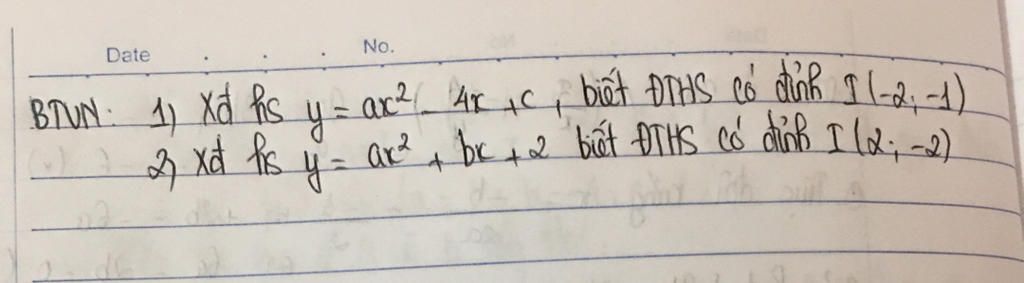 Date . . . No.
BTVN: 1) Xđ hs y = ax² - 4x + c, biết ĐTHS có đỉnh I(-2; -1)
2) Xđ hs y = ax² + bx + 2 biết ĐTHS có đỉnh I(2; -2)